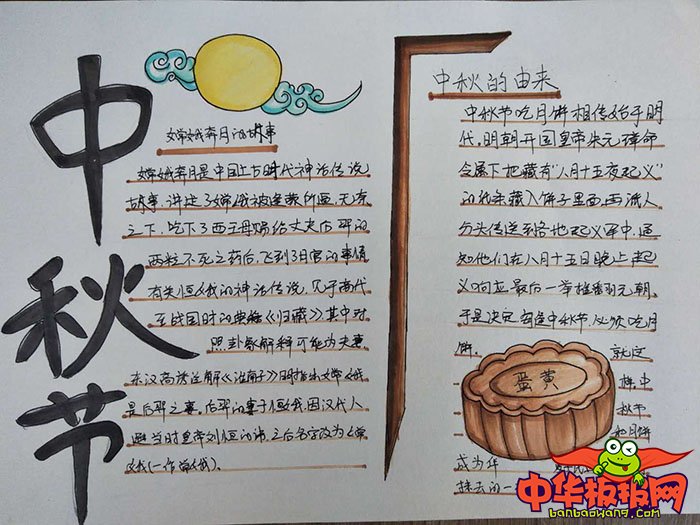 中秋节
嫦娥奔月的故事
嫦娥奔月是中国上古时代神话传说
故事,讲述了嫦娥被逢蒙所逼,无奈
之下,吃下了西王母赐给丈夫后羿的
两粒不死之药后,飞到了月宫的事情
有关恒娥的神话传说,见于商代
至战国时的典籍《归藏》其中对
照卦象解释可能为夫妻
东汉高诱注解《淮南子》明指出嫦娥
是后羿之妻,后羿的妻子恒娥,因汉代人
避当时皇帝刘恒的讳,之后名字改为嫦
娥(一作常娥)。
中秋的由来
中秋节吃月饼相传始于明
代,明朝开国皇帝朱元璋命
令属下把藏有"八月十五夜起义"
的纸条藏入饼子里面,再派人
分头传送到各地起义军中,通
知他们在八月十五日晚上起
义响应,最后一举推翻元朝,
于是决定 中秋节,必须吃月
饼。 就这
样中
秋节
吃月饼
成为华
抹去的一
蛋黄
中华板报网
banbaowang.com